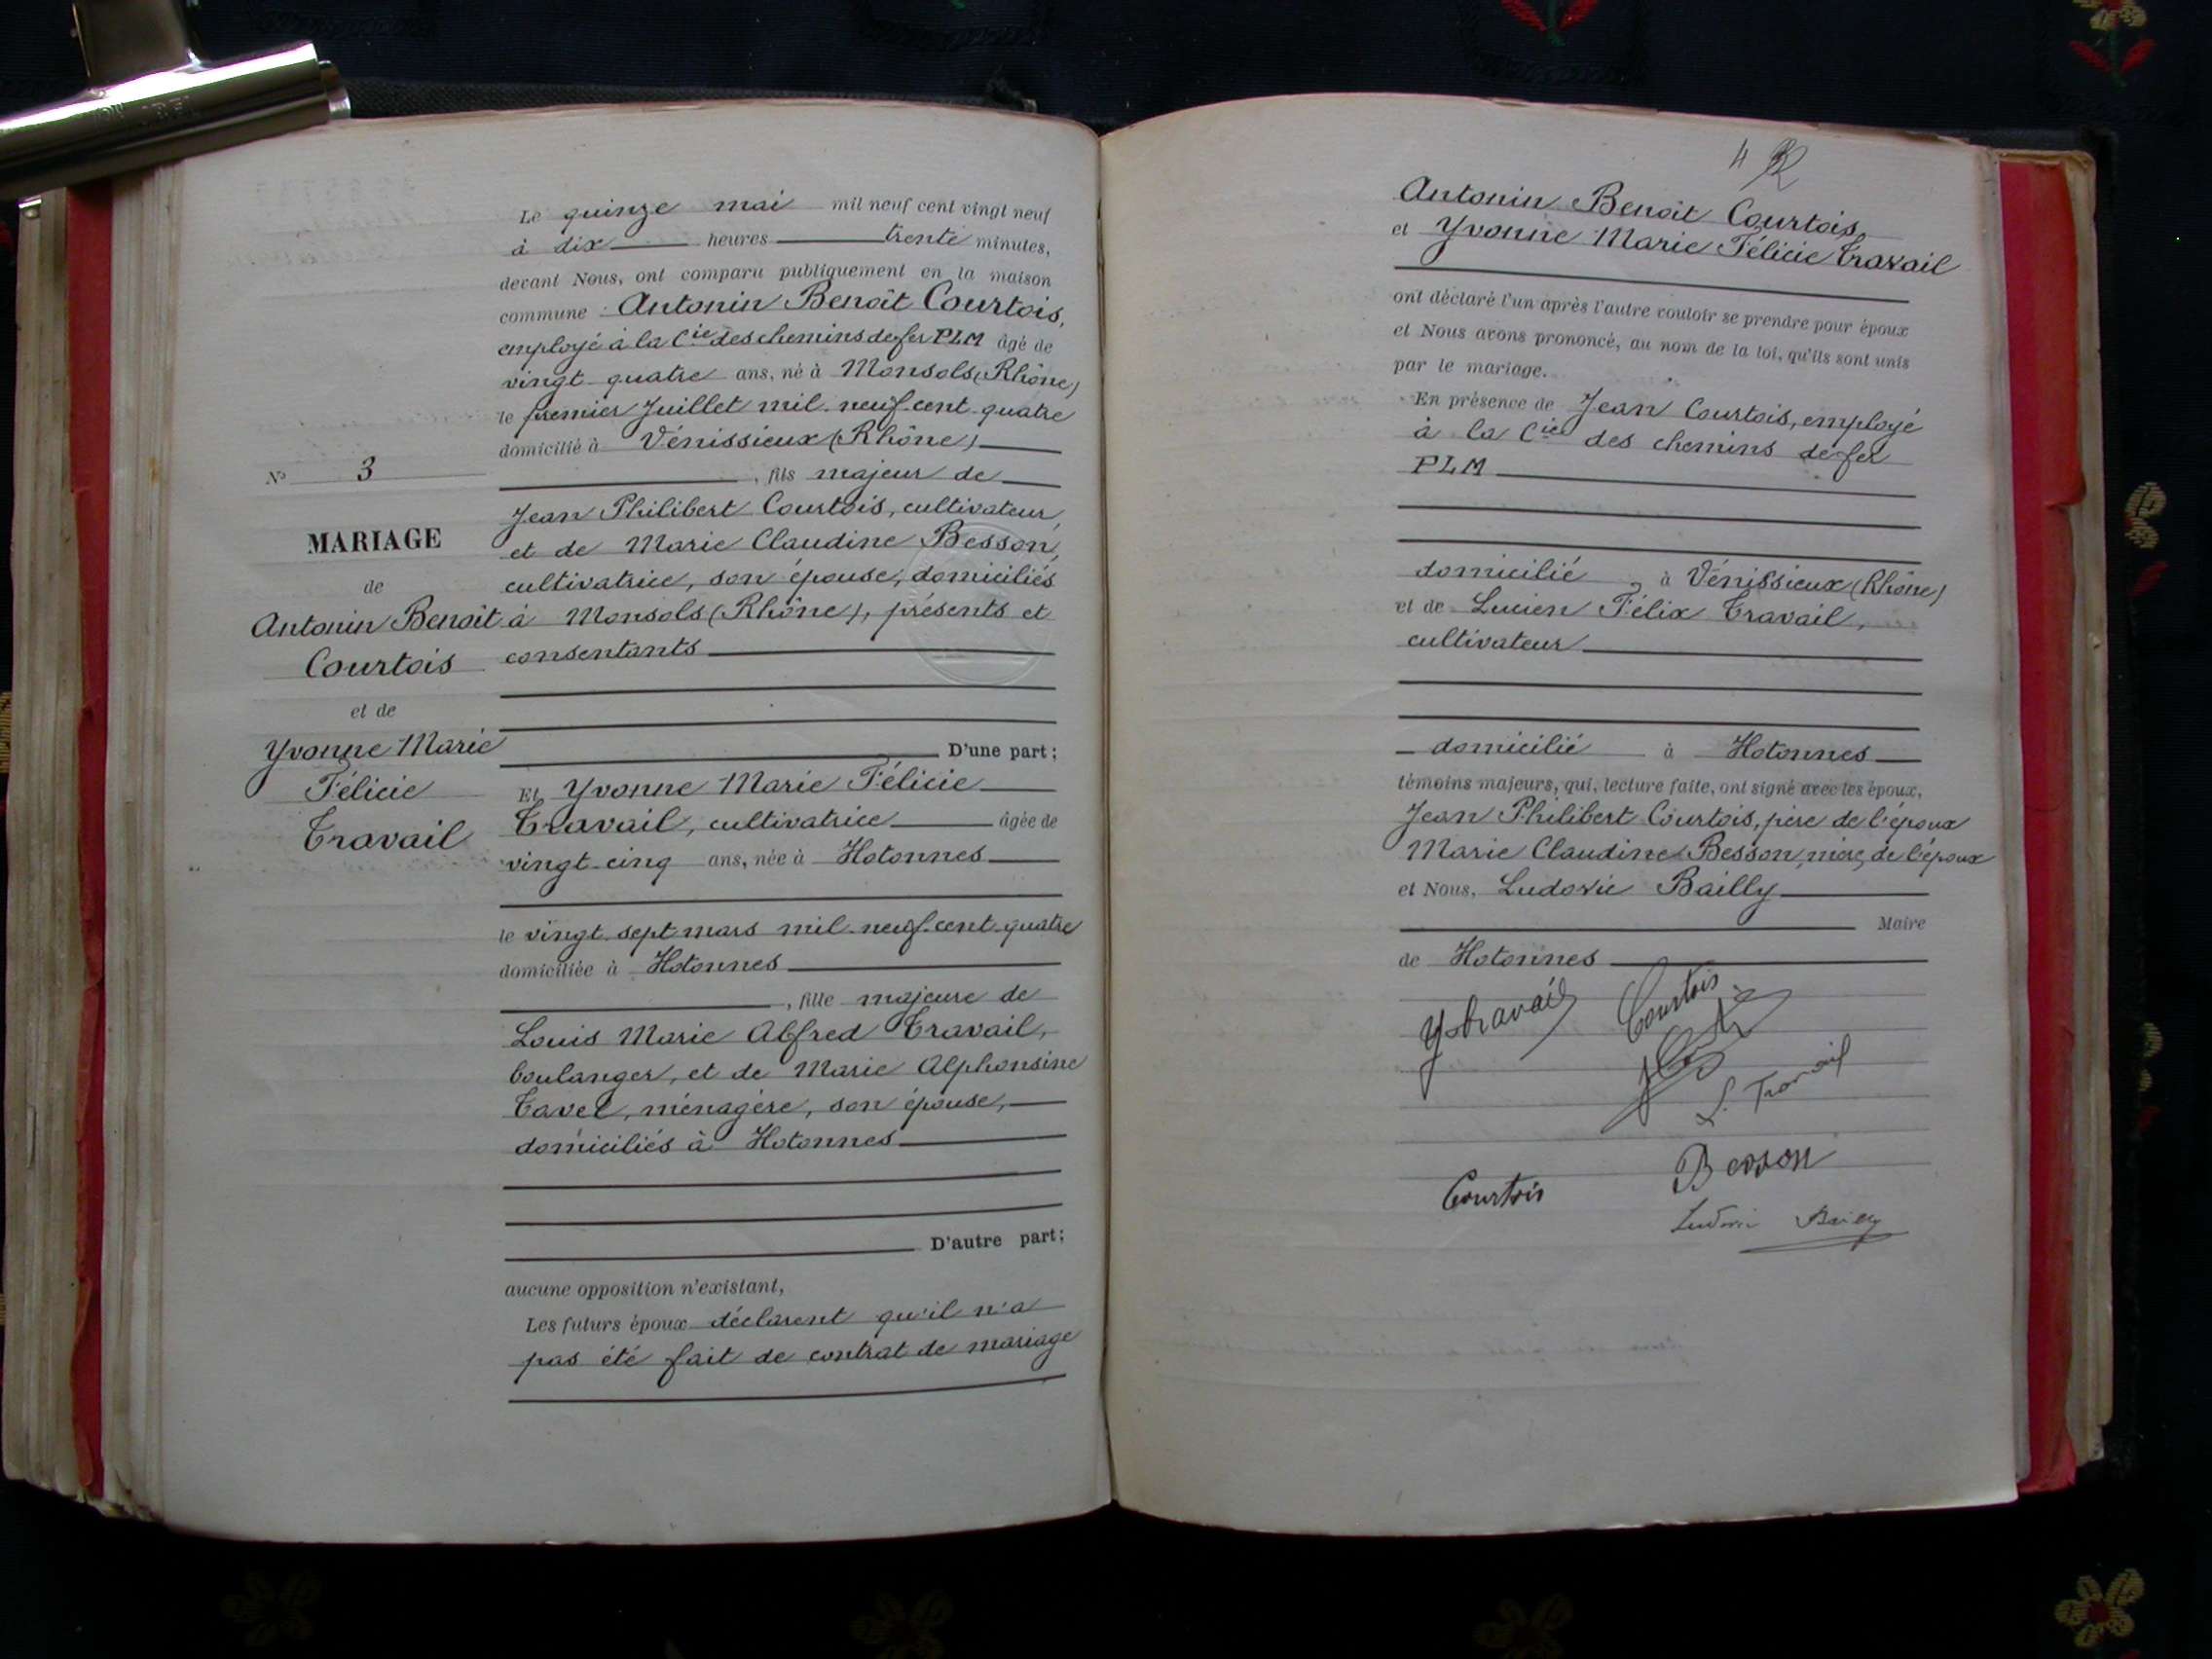 N° 3
MARIAGE
de
Antonin Benoît
Courtois
et de
Yvonne Marie
Félicie
Travail
Le quinze mai mil neuf cent vingt neuf
à dix heures trente minutes,
devant Nous, ont comparu publiquement en la maison
commune : Antonin Benoît Courtois,
employé à la Cie des chemins de fer PLM âgé de
vingt-quatre ans, né à Monsols (Rhône)
le premier Juillet mil-neuf-cent-quatre
domicilié à Vénissieux (Rhône)
, fils majeur de
Jean Philibert Courtois, cultivateur,
et de Marie Claudine Besson,
cultivatrice, son épouse, domiciliés
à Monsols (Rhône), présents et
consentants
D'une part ;
Et Yvonne Marie Félicie
Travail, cultivatrice âgée de
vingt-cinq ans, née à Hotonnes
le vingt-sept mars mil-neuf-cent-quatre
domiciliée à Hotonnes
, fille majeure de
Louis Marie Alfred Travail,
boulanger, et de Marie Alphonsine
ménagère, son épouse,
domiciliés à Hotonnes
D'autre part ;
aucune opposition n'existant,
Les futurs époux déclarent qu'il n'a
pas été fait de contrat de mariage
4
Antonin Benoît Courtois,
et Yvonne Marie Félicie Travail
ont déclaré l'un après l'autre vouloir se prendre pour époux
et Nous avons prononcé, au nom de la loi, qu'ils sont unis
par le mariage.
En présence de Jean Courtois, employé
à la Cie des chemins de fer
PLM
domicilié à Vénissieux (Rhône)
et de Lucien Félix Travail,
cultivateur
domicilié à Hotonnes
témoins majeurs, qui, lecture faite, ont signé avec les époux,
Jean Philibert Courtois, père de l'époux
Marie Claudine Besson, mère de l'époux
et Nous, Ludovic Bailly
Maire
de Hotonnes
Y Travail Courtois
L. Travail
Besson
Courtois
Ludovic Bailly